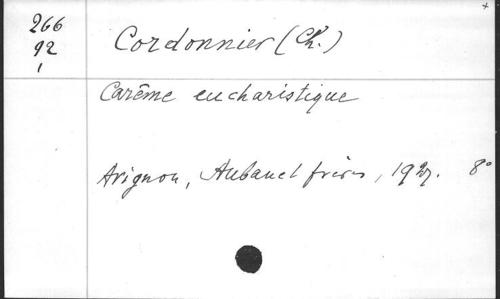 266
92
1
Cordonnier (Ch.)
Carême eucharistique
Avignon, Aubanel frères, 1927. 8°